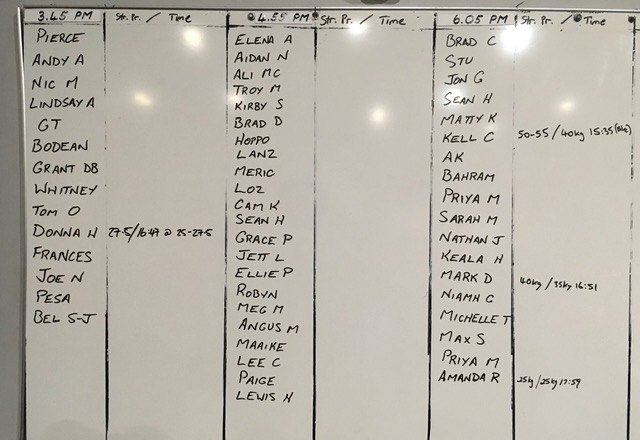 3.45 PM Str. Pr. / Time
PIERCE
ANDY A
NIC M
LINDSAY A
GT
BODEAN
GRANT DB
WHITNEY
TOM O
DONNA W 27.5/16:47 @ 25-27.5
FRANCES
JOE N
PESA
BEL S-J
4.55 PM Str. Pr. / Time
ELENA A
AIDAN N
ALI MC
TROY M
KIRBY S
BRAD D
HOPPO
LANZ
MERIC
LOZ
CAM K
SEAN H
GRACE P
JETT L
ELLIE P
ROBYN
MEG M
ANGUS M
MAAIKE
LEE C
PAIGE
LEWIS H
6.05 PM Str. Pr. / Time
BRAD C
STU
JON G
SEAN H
MATTY K
KELL C 50-55/40kg 15:35
AK
BAHRAM
PRIYA M
SARAH M
NATHAN J
KEALA H
MARK D 40kg/35kg 16:51
NIAMH C
MICHELLE T
MAX S
PRIYA M
AMANDA R 25kg/25kg 17:59